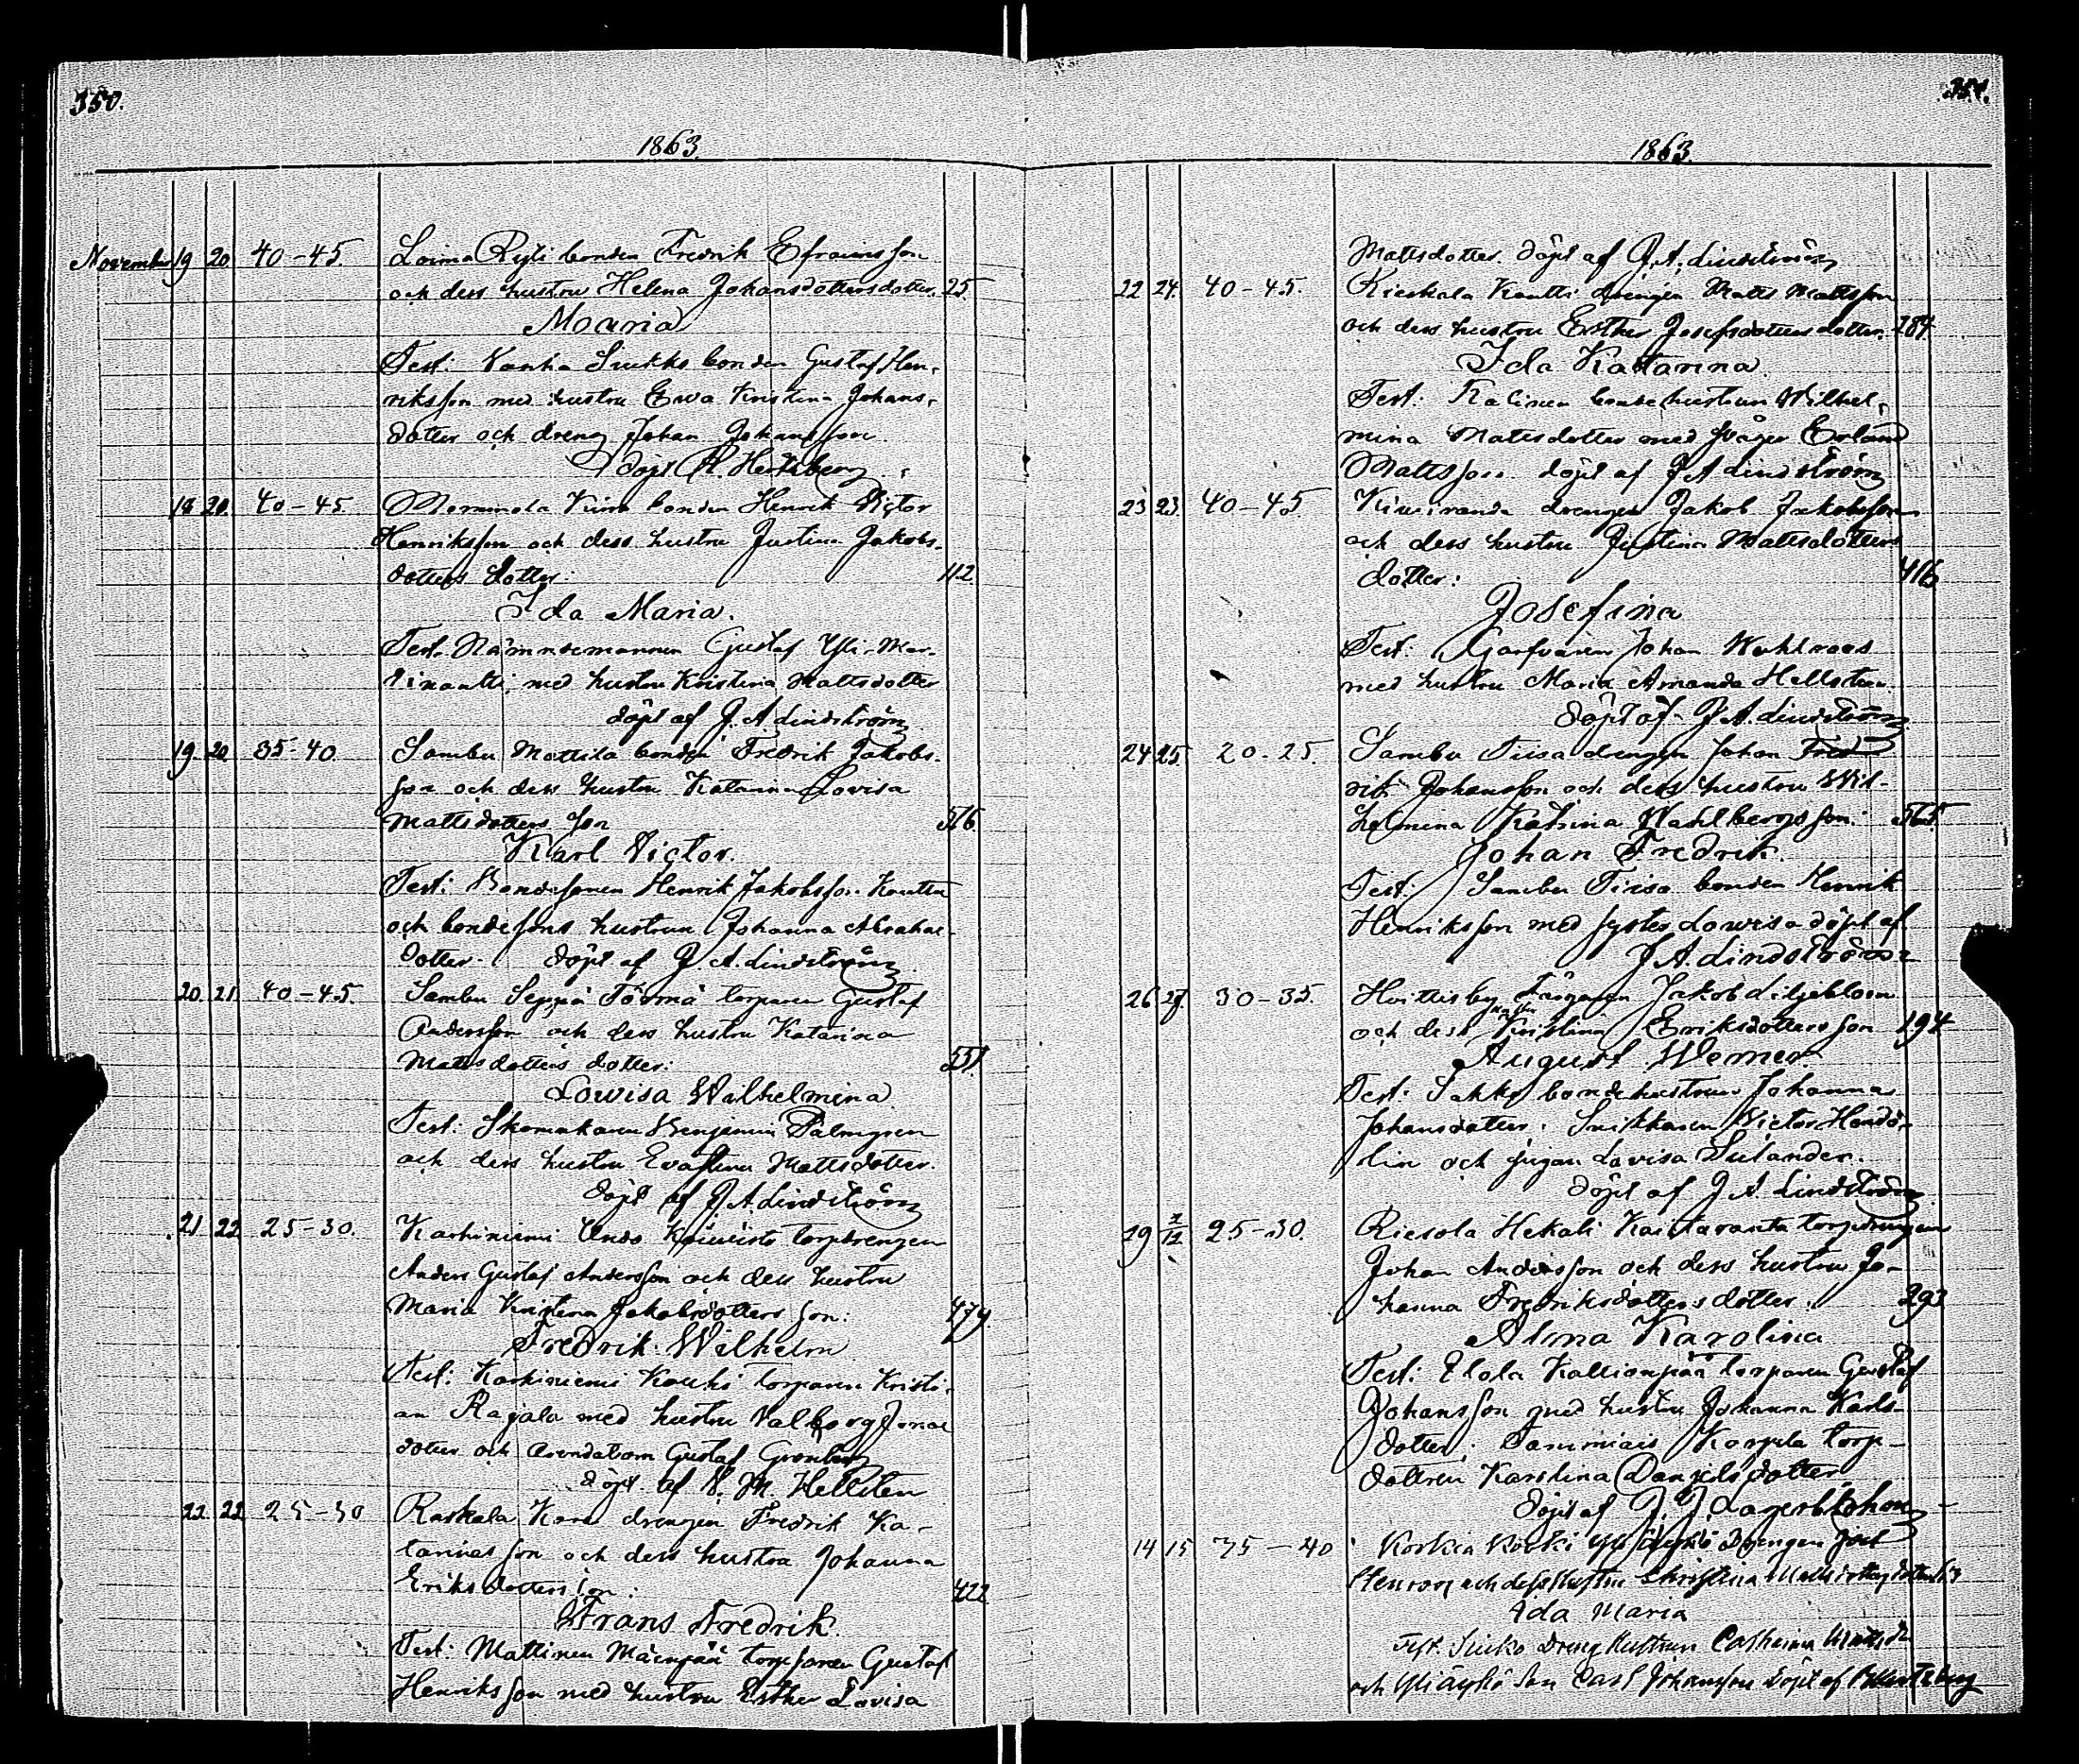 350.
1863.
November 19 20 40-45. Loima Ryti bonden Fredrik Efraimsson
och dess hustru Helena Johansdotters dotter. 25
Maria
Test: Vanha Sukko bonden Gustaf Hen-
riksson med hustru Ewa Kristina Johans-
dotter och dreng Johan Johansson.
döpt A. Hertzberg
18 20 40-45 Mommola bonden Henrik Victor
Henriksson och dess hustru Justina Jakobs-
dotters dotter: 112
Ida Maria.
Test. Nämndemannen Gustaf Yli-
med hustru Kristina Mattsdotter
döpt af J. A Lindström
19 20 35-40 Sambu Mattila bonden Fredrik Jakobs-
son och dess hustru Katarina Lovisa
Mattsdotters son 516
Karl Victor.
Test: Bondesonen Henrik Jakobsson
och bondesons hustrun Johanna Abraha-
dotter. döpt af J. A. Lindström
20 21 40-45. Sambu Seppä Törmä torparen Gustaf
Andersson och dess hustru Katarina
Mattsdotters dotter: 551
Lowisa Wilhelmina
Test: Skomakaren Benjamin Palmgren
och dess hustru Evastina Mattsdotter.
döpt af J A Lindström
21 22 25-30. Karhiniemi torpdrengen
Anders Gustaf Andersson och dess hustru
Maria Kristina Jakobsdotters son: 479
Fredrik Wilhelm
Test: Karhiniemi Kauki torparen Kristi-
an Rajala med hustru Valborg Jonae
dotter och Gustaf Grönberg
döpt af Hellsten
22 22 25-30 Raskala drengen Fredrik Ka-
tarinasson och dess hustru Johanna
Eriksdotters son: 422
Frans Fredrik.
Test: Mattinen Mäenpää torpsonen Gustaf
Henriksson med hustru Esther Lovisa
351.
1863.
Mattsdotter. döpt af J. A. Lindström
22 24. 40-45. Kieskala Kautti drengen Matts Mattsson
och dess hustru Esther Josefsdotters dotter. 284
Ida Katarina.
Test: bondehustrun Wilhel-
mina Mattsdotter med svåger Erland
Mattsson. döpt af J A Lindström
23 23 40-45. Kiwiranda drengen Jakob Jakobsson
och dess hustru Justina Mattsdotters
dotter: 416
Josefina
Test: Garfvaren Johan Wahlroos
med hustru Maria Amanda Hellsten.
döpt af J A. Lindström
24 25 20-25. Sambu Tiisa drengen Johan Fred-
rik Johansson och dess hustru Wil-
helmina Katrina Wahlbergs son. 565
Johan Fredrik.
Test: Sambu Tiisa bonden Henrik
Henriksson med syster Lowisa döpt af
J A. Lindström
26 27. 30-35. Huittisby Färgaren Jakob Liljeblom
och dess hustru Kristina Eriksdotters son 194
August Werner.
Test: Sakko bondehustrun Johanna
Johansdotter. Snickaren Victor
och pigan Lovisa Sulander.
döpt af J A. Lindström
29 2/12 25-30. Riesola Hekali torpdrengen
Johan Andersson och dess hustru Jo-
hanna Fredriksdotters dotter. 293
Alma Karolina
Test: Elola Kallionpää torparen Gustaf
Johansson med hustru Johanna Karls-
dotter. Sammais Korpela torp-
dottren Karolina Danjelsdotter
döpt af J. J. Lagerblohm
14 15 35-40 Korkia Koski drengen
och dess hustru Christina dotter
Ida Maria
Test. Sukko Dreng hustrun Catharina
och son Carl Johansson döpt af A Hertzberg